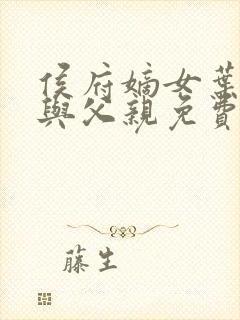 侯府嫡女葉
與父親免費
藤生